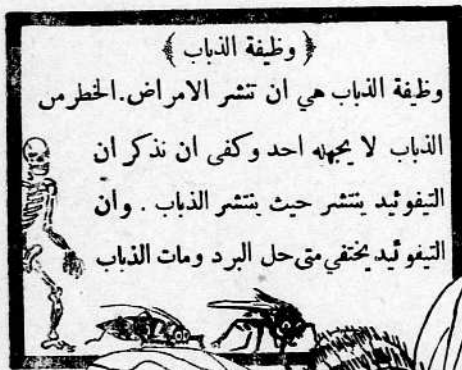 ﴿ وظيفة الذباب ﴾
وظيفة الذباب هي ان تنشر الامراض. الخطر من
الذباب لا يجهله احد وكفى ان نذكر ان
التيفوئيد ينتشر حيث ينتشر الذباب . وان
التيفوئيد يختفي متى حل البرد ومات الذباب